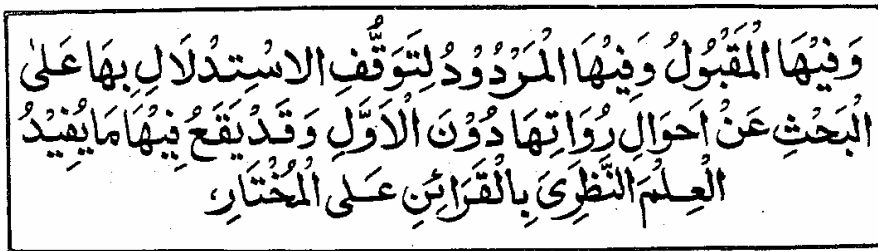 وَفِيْهَا الْمَقْبُولُ وَفِيْهَا الْمَرْدُوْدُ لِتَوَقُّفِ الاسْتِدْلَالِ بِهَا عَلىٰ
الْبَحْثِ عَنْ اَحَوَالِ رُوَاتِهَا دُوْنَ الْاَوَّلِ وَقَدْ يَقَعُ فِيْهَا مَا يُفِيْدُ
الْعِلْمَ النَّظَرِىَ بِالْقَرَائِنِ عَلى الْمُخْتَارِ،